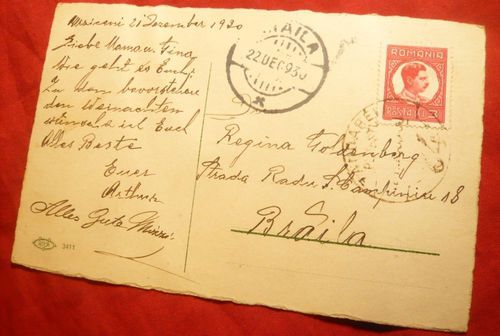 21 Dezember 1930
Liebe Mama u. Tina
Wie geht es Euch?
Zu den bevorstehenden
den Weinachten
wünsche ich Euch
Alles Beste
Euer
Arthur
Alles Gute
3411
BRAILA
22 DEC 930
ROMANIA
Posta Lei 3
Regina Goldenberg
Strada Radu S. Campiniu 18
Braila